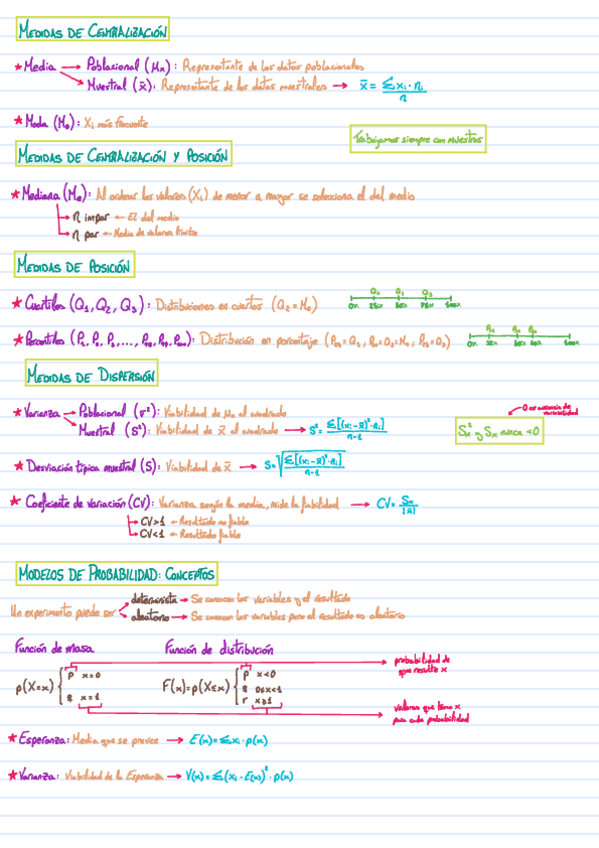 MEDIDAS DE CENTRALIZACIÓN
* Media → Poblacional (μx): Representante de los datos poblacionales
→ Muestral (x̄): Representante de los datos muestrales → x̄ = Σxi·ni / n
* Moda (Mo): Xi más frecuente
Trabajamos siempre con muestras
MEDIDAS DE CENTRALIZACIÓN Y POSICIÓN
* Mediana (Me): Al ordenar los valores (Xi) de menor a mayor se selecciona el del medio
→ n impar ← El del medio
→ n par ← Media de valores límite
MEDIDAS DE POSICIÓN
* Cuartiles (Q1, Q2, Q3): Distribuciones en cuartos (Q2 = Me)
Q1 Q2 Q3
0% 25% 50% 75% 100%
* Percentiles (P1, P2, P3, ..., P98, P99, P100): Distribución en porcentaje (P25 = Q1, P50 = Q2 = Me, P75 = Q3)
MEDIDAS DE DISPERSIÓN
* Varianza → Poblacional (σ²): Viabilidad de μx al cuadrado
→ Muestral (S²): Viabilidad de x̄ al cuadrado → S² = Σ[(xi - x̄)²·ni] / n-1
0 es ausencia de variabilidad
Sx² y Sx nunca <0
* Desviación típica muestral (S): Viabilidad de x̄ → S = √(Σ[(xi - x̄)²·ni] / n-1)
* Coeficiente de variación (CV): Varianza según la media, mide la fiabilidad → CV = Sx / |x̄|
→ CV>1 ← Resultado no fiable
→ CV<1 ← Resultado fiable
MODELOS DE PROBABILIDAD: CONCEPTOS
Un experimento puede ser
determinista → Se conocen las variables y el resultado
aleatorio → Se conocen las variables pero el resultado es aleatorio
Función de masa Función de distribución
probabilidad de que resulte x
p(X=x) { p x=0
q x=1
F(x)=p(X≤x) { p x<0
q 0≤x<1
r x≥1
valores que toma x para cada probabilidad
* Esperanza: Media que se prevee → E(x) = Σxi·p(x)
* Varianza: Viabilidad de la Esperanza → V(x) = Σ(xi - E(x))²·p(x)